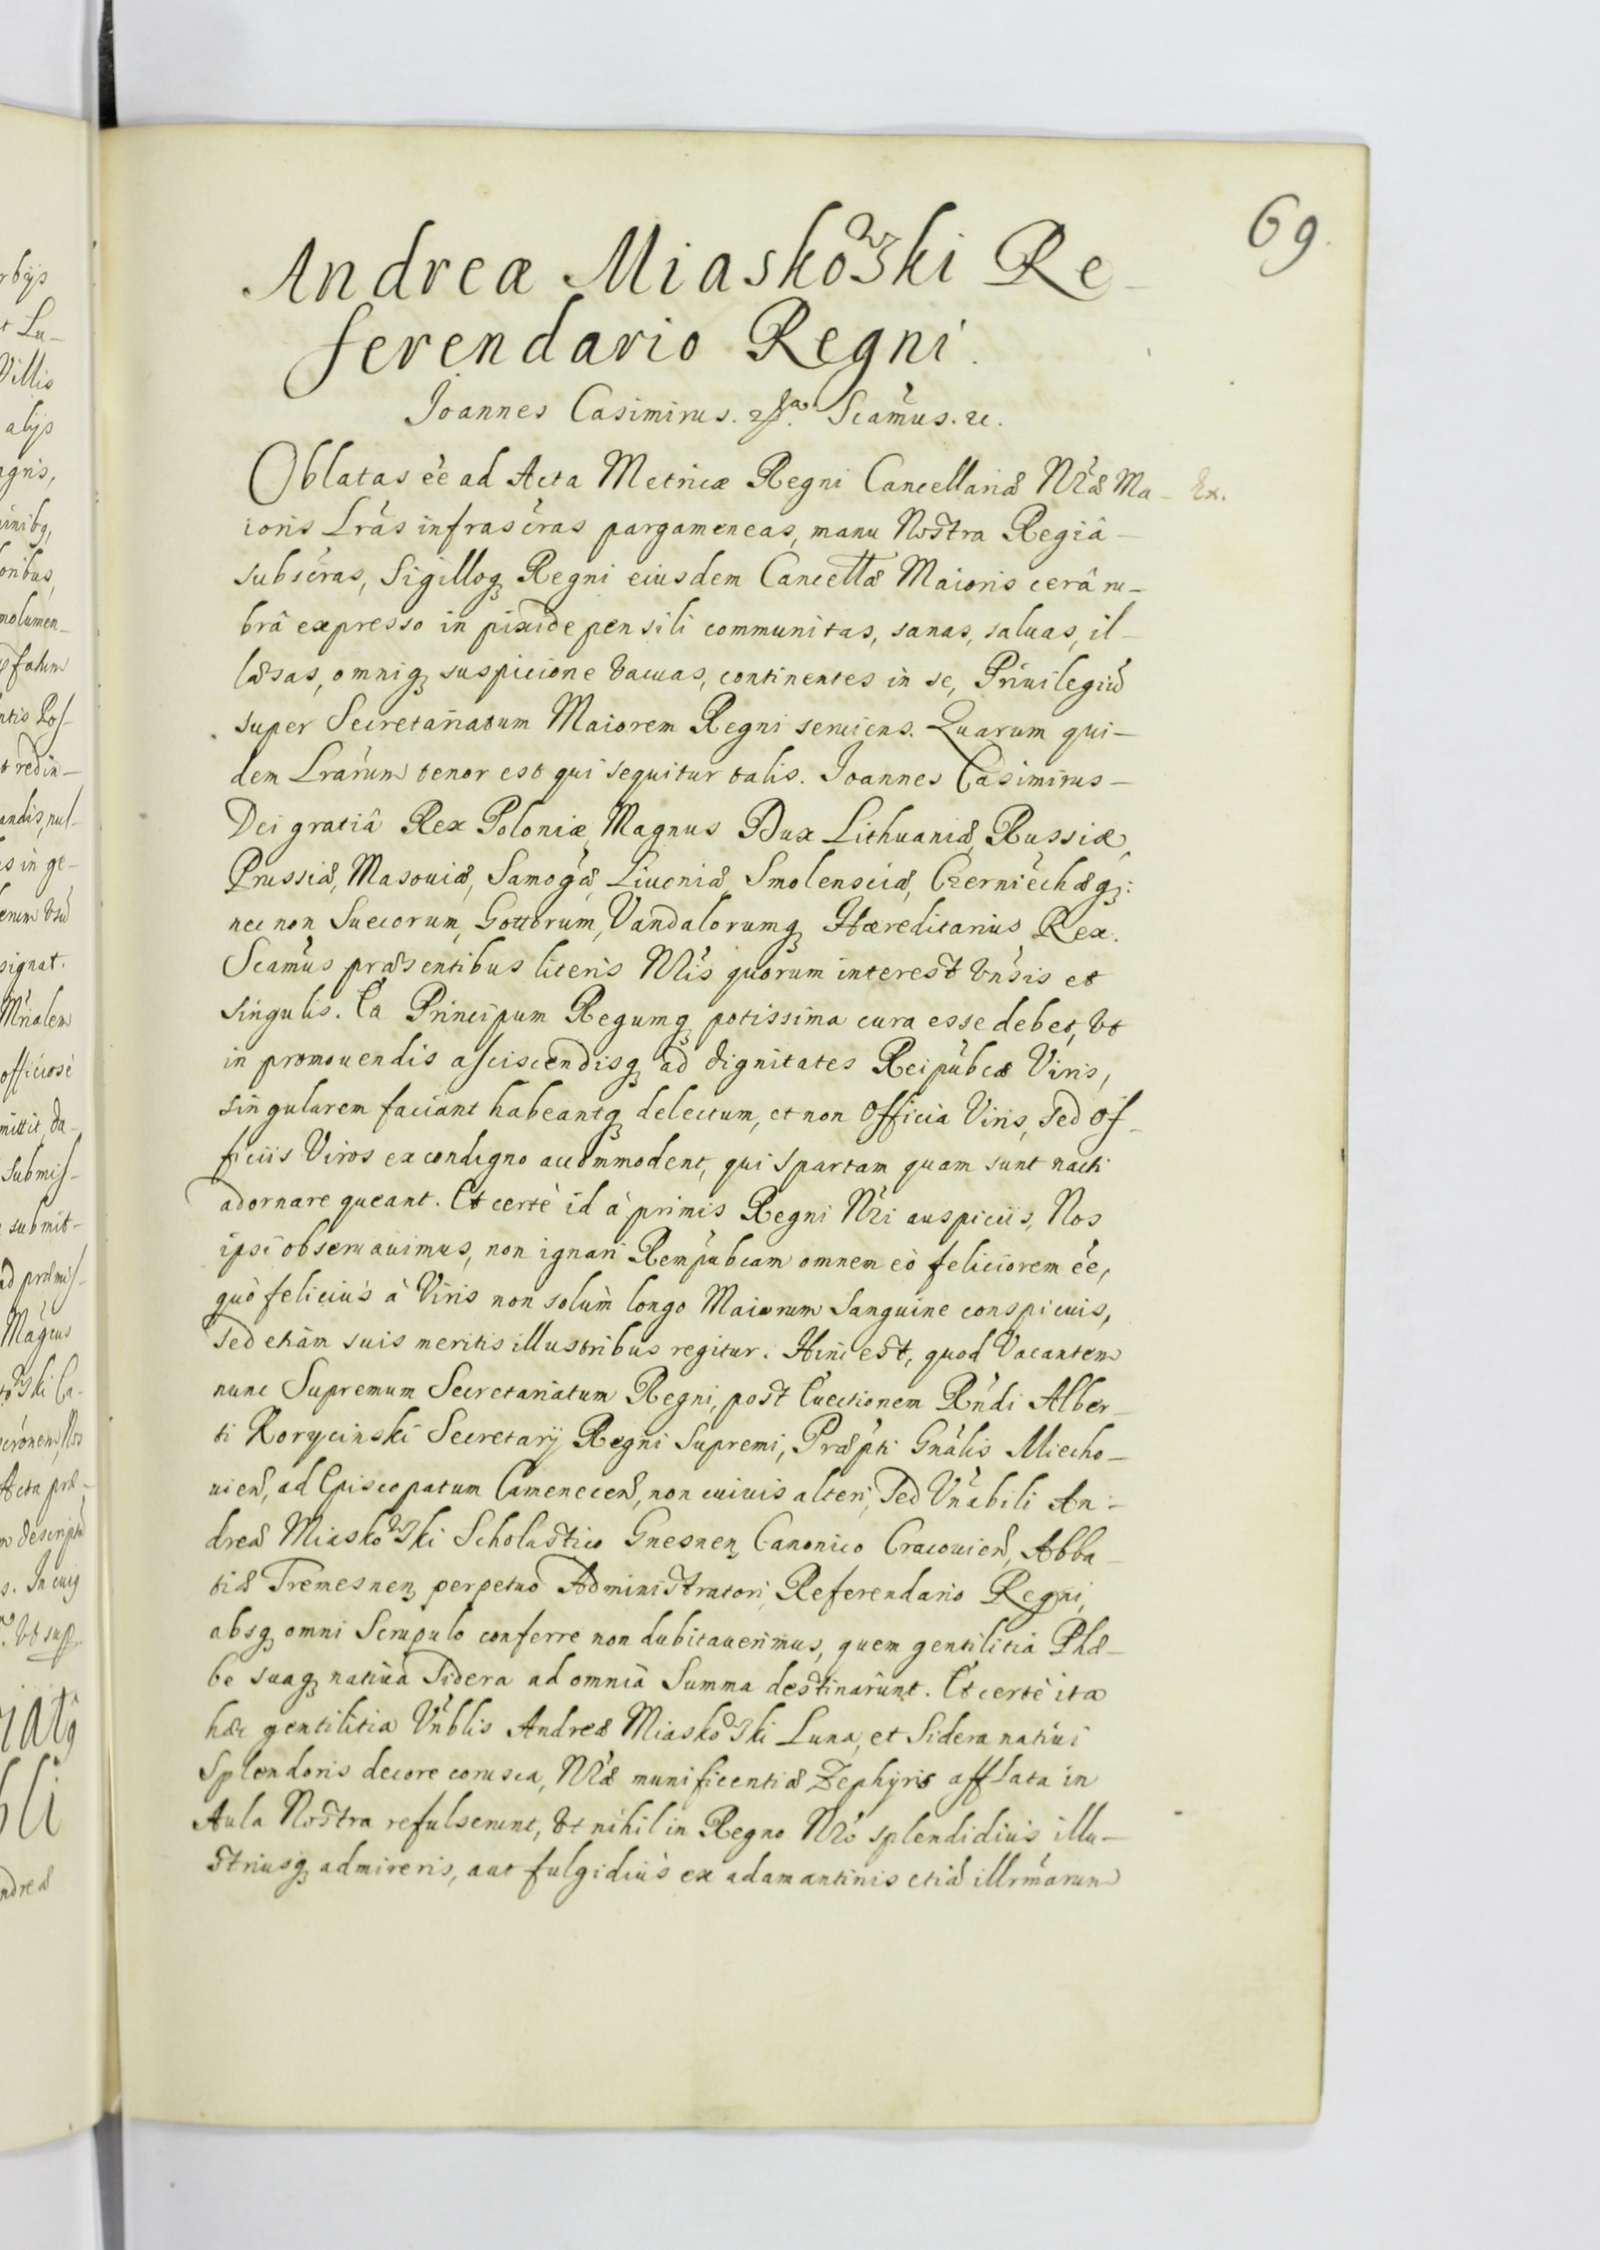 69.
Andreæ Miaskowski Re-
ferendario Regni.
Joannes Casimirus. Scãmus. &c.
Oblatas ee ad Acta Metricæ Regni Cancellariæ Nræ Ma-
Ex.
ioris Lras infrascras pargameneas, manu Nostra Regiâ
subscras, Sigilloq Regni eiusdem Cancellæ Maioris cerâ ru-
brâ expresso in pixide pensili communitas, sanas, saluas, il-
læsas, omniq suspicione vacuas, continentes in se, Priuilegiũ
super Secretariatum Maiorem Regni seruiens. Quarum qui-
dem Lrarum tenor est qui sequitur talis. Joannes Casimirus
Dei gratiâ Rex Poloniæ, Magnus Dux Lithuaniæ, Russiæ,
Prussiæ, Masouiæ, Samogæ, Liuoniæ, Smolensciæ, Czerniechæq;
nec non Suecorum, Gottorum, Vandalorumq Hæreditarius Rex.
Scamus præsentibus literis Nris quorum interest vnsis et
singulis. Ea Principum Regumq potissima cura esse debet, vt
in promouendis asciscendisq ad dignitates Reipubcæ Viris,
singularem faciant habeantq delectum, et non Officia Viris, sed of-
ficiis Viros ex condigno accommodent, qui spartam quam sunt nacti
adornare queant. Et certè id à primis Regni Nri auspiciis, Nos
ipsi obseruauimus, non ignari Rempubcam omnem eò feliciorem ee,
quò feliciùs à Viris non solùm longo Maiorum Sanguine conspicuis,
sed etiam suis meritis illustribus regitur. Hinc est, quod Vacantem
nunc Supremum Secretariatum Regni, post Euectionem Rndi Alber-
ti Korycinski Secretarij Regni Supremi, Præpti Gnalis Miecho-
uien, ad Episcopatum Camenecen, non cuiuis alteri, sed Vnabili An-
dreæ Miaskowski Scholastico Gnesnen Canonico Cracouien, Abba-
tiæ Tremesnen perpetuo Administratori, Referendario Regni,
absq omni Scrupulo conferre non dubitauerimus, quem gentilitia Phæ-
be suaq natiua Sidera ad omnia Summa destinarunt. Et certè ita
hæc gentilitia Vnblis Andreæ Miaskowski Luna, et Sidera natiui
Splendoris decore corusca, Nræ munificentiæ Zephyris afflata in
Aula Nostra refulserunt, vt nihil in Regno Nro splendidiùs illu-
striusq admireris, aut fulgidiùs ex adamantinis etiã illrmarum